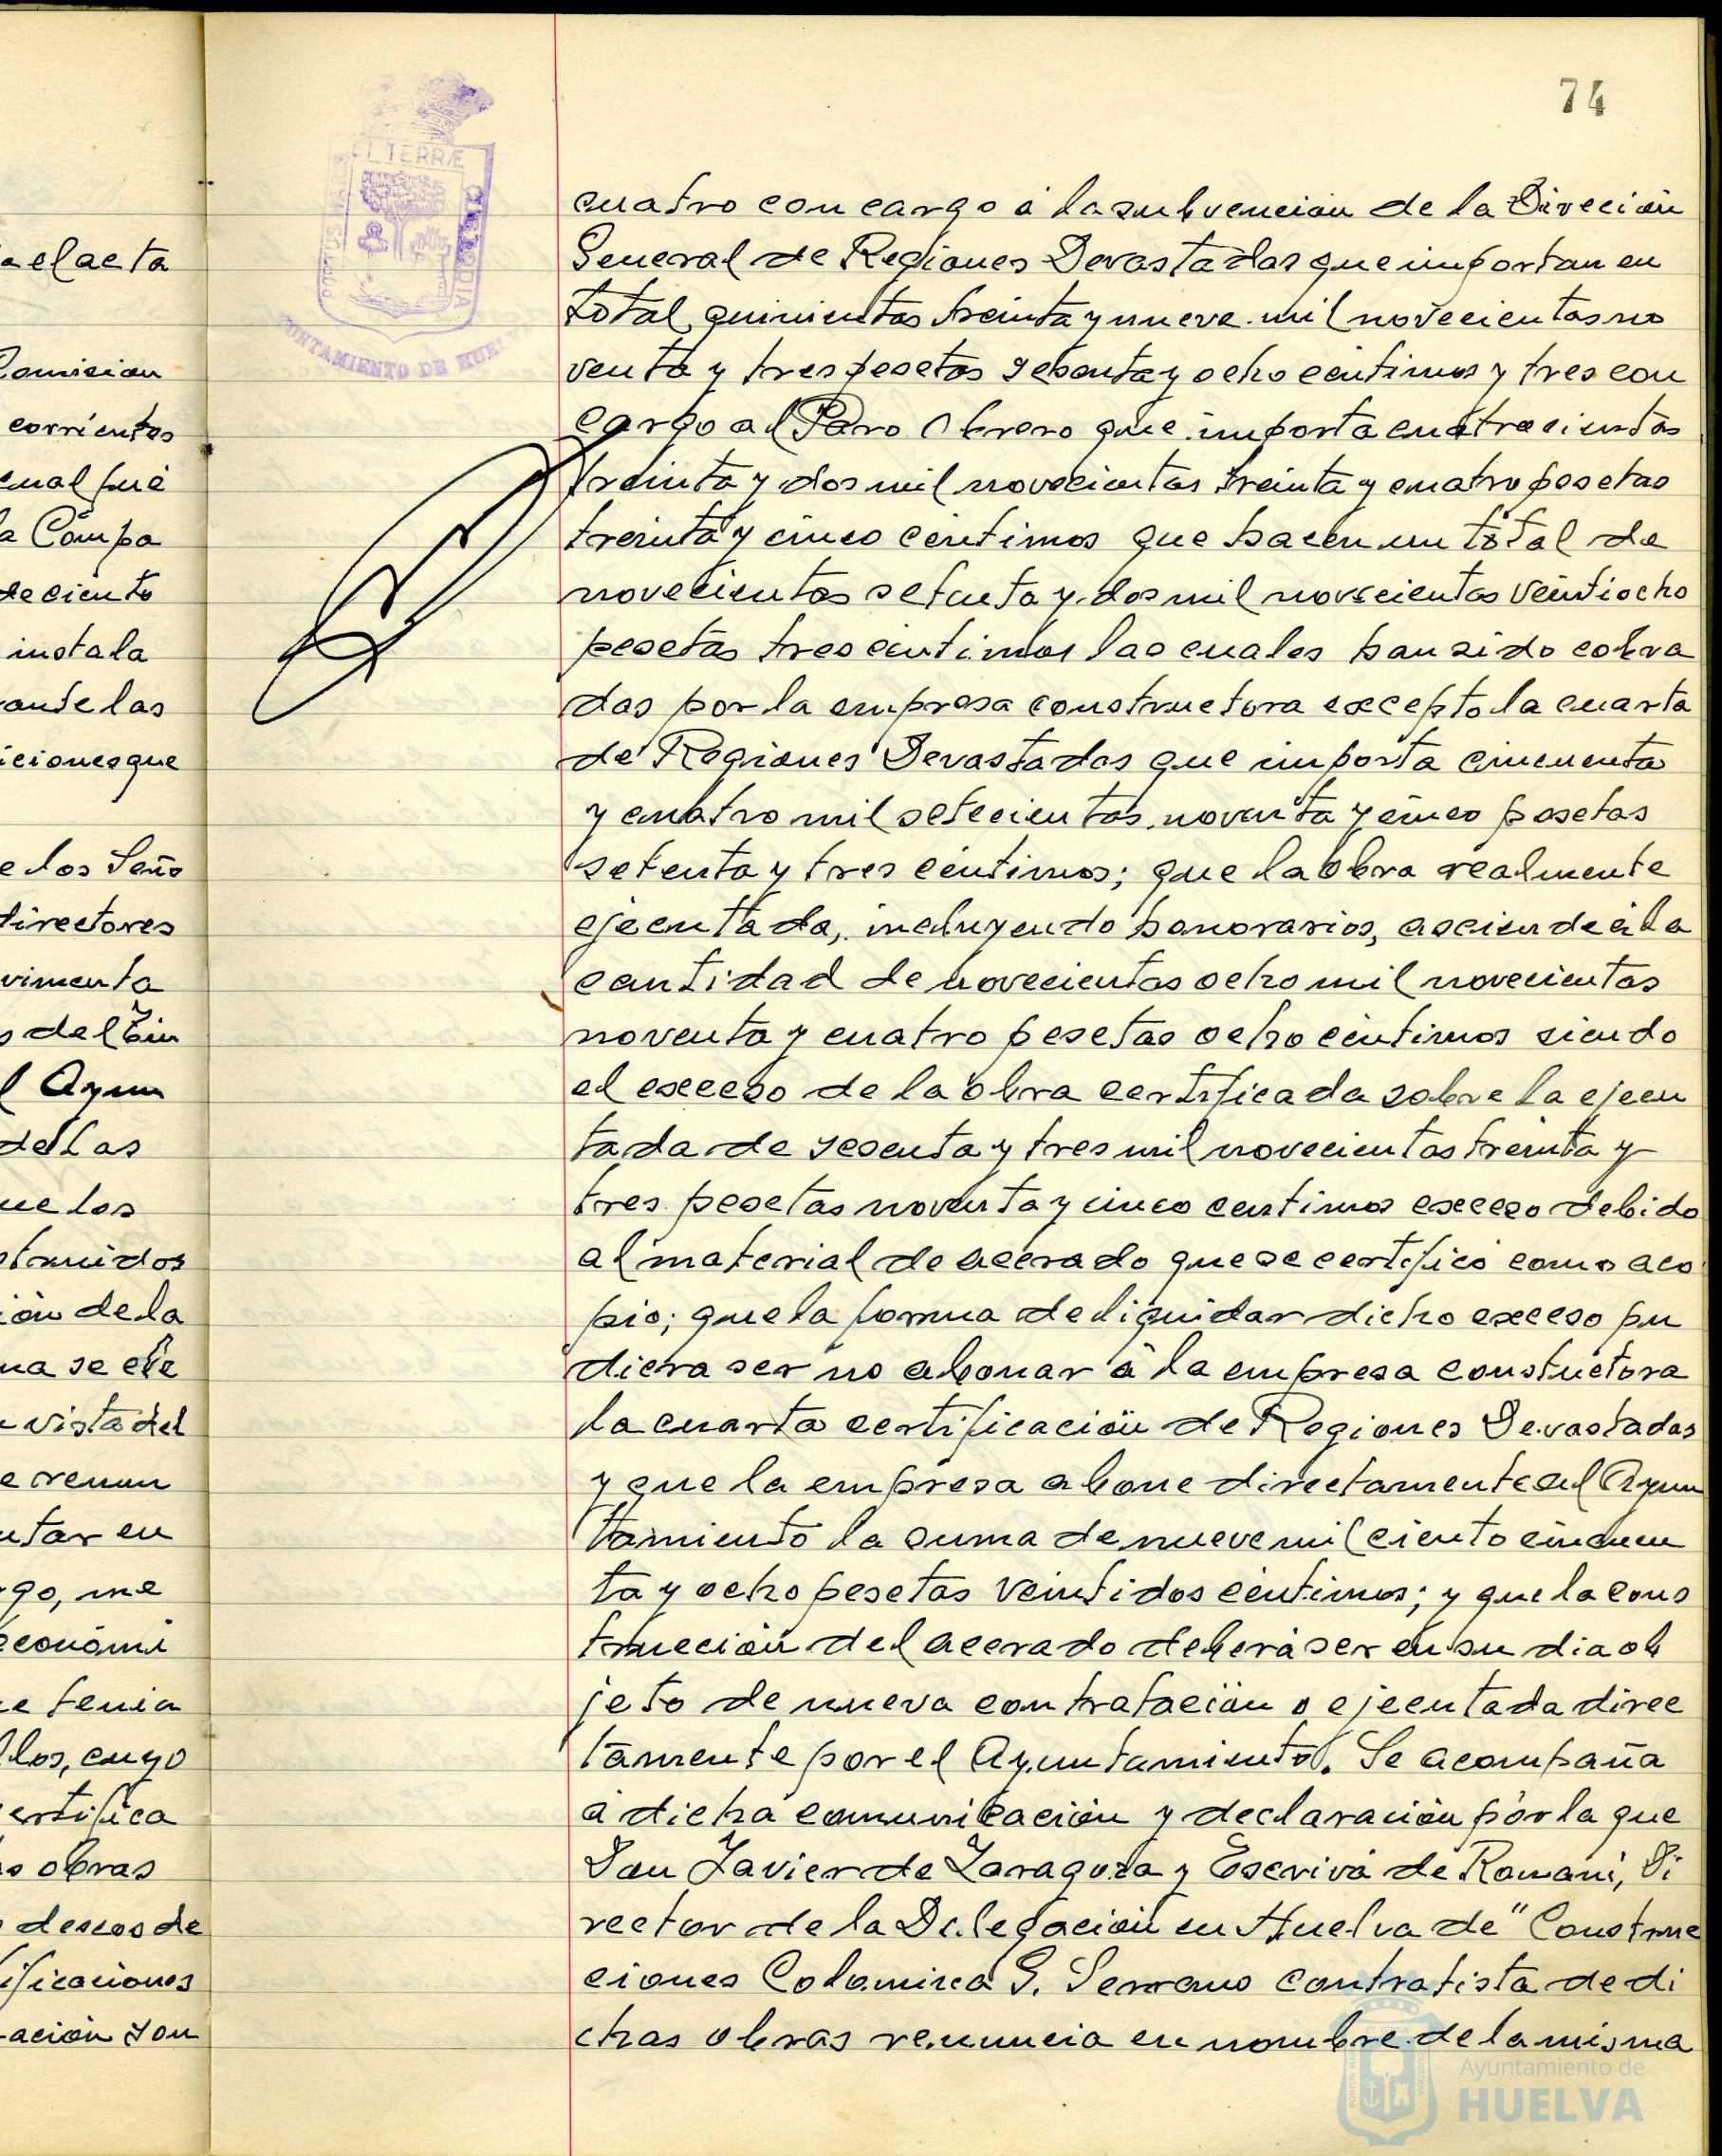 74
cuatro con cargo á la subvencion de la Direción
General de Regiones Devastadas que importan en
total quinientas treinta y nueve mil novecientas no
venta y tres pesetas sesenta y ocho centimos y tres con
cargo al Paro Obrero que importa cuatrocientas
treinta y dos mil novecientas treinta y cuatro pesetas
treinta y cinco centimos que hacen un total de
novecientas setenta y dos mil novecientas veintiocho
pesetas tres centimos las cuales han sido cobra
das por la empresa constructora excepto la cuarta
de Regiones Devastadas que importa cincuenta
y cuatro mil setecientas noventa y cinco pesetas
setenta y tres centimos; que la obra realmente
ejecutada, incluyendo honorarios, asciende á la
cantidad de novecientas ocho mil novecientas
noventa y cuatro pesetas ocho centimos siendo
el exceso de la obra certificada sobre la ejecu
tada de sesenta y tres mil novecientas treinta y
tres pesetas noventa y cinco centimos exceso debido
al material de acerado que se certificó como aco
pio; que la forma de liquidar dicho exceso pu
diera ser no abonar á la empresa constuctora
la cuarta certificación de Regiones Devastadas
y que la empresa abone directamente al Ayun
tamiento la suma de nueve mil ciento cincuen
ta y ocho pesetas veintidos centimos; y que la cons
trucción del acerado deberá ser en su dia ob
jeto de nueva contratación o ejecutada direc
tamente por el Ayuntamiento. Se acompaña
a dicha comunicación y declaración por la que
Don Javier de Zaragoza y Escrivá de Romani, Di
rector de la Delegación en Huelva de "Construc
ciones Colomina G. Serrano contratista de di
chas obras renuncia en nombre de la misma
a el acta
Comision
corrientes
cual fué
a Compa
de ciento
instala
ante las
iciones que
e los Seño
directores
vimenta
l Ayun
de las
ue los
struidos
ión de la
ma se ele
vista del
e renun
utar en
rgo, me
económi
e tenia
llos, cuyo
ertifica
s obras
deseos de
ificaciones
ación son
TERRÆ
CUSTODIA
AYUNTAMIENTO DE HUELVA
Ayuntamiento de
HUELVA